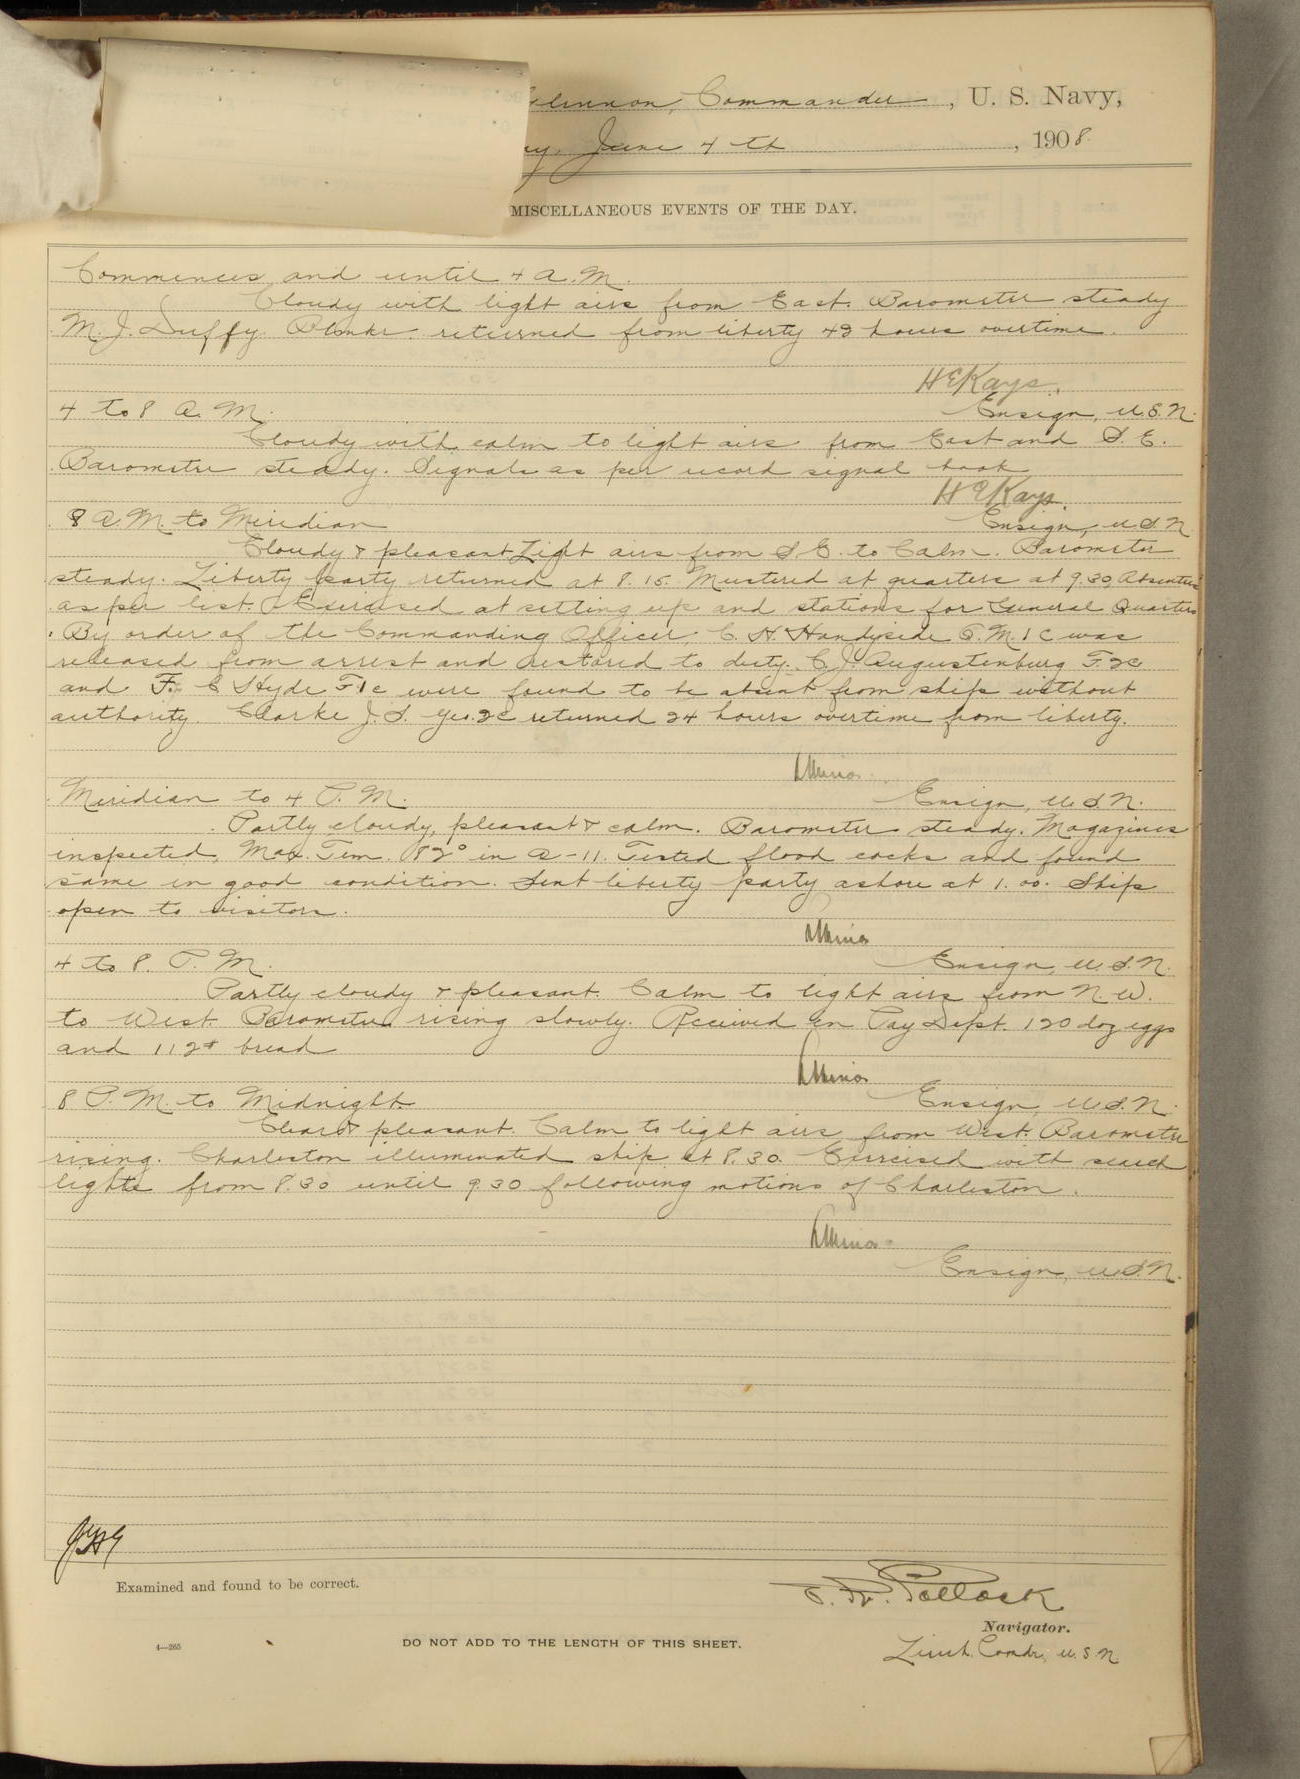 Commander, U. S. Navy,
June 4th, 1908
MISCELLANEOUS EVENTS OF THE DAY.
Commences and until 4 A.M.
Cloudy with light airs from East. Barometer steady
M. J. Duffy returned from liberty 48 hours overtime.
H E Kays.
4 to 8 A. M. Ensign, U.S.N.
Cloudy with calm to light airs from East and S. E.
Barometer steady. Signals as per record signal book
H E Kays.
8 A.M. to Meridian Ensign, U.S.N
Cloudy & pleasant Light airs from S. E. to Calm. Barometer
steady. Liberty party returned at 8.15. Mustered at quarters at 9.30, Absentees
as per list. Exercised at setting up and stations for General Quarters
By order of the Commanding Officer C. H. Handyside 1 C was
released from arrest and restored to duty. C. J. Augustenburg F. 2c
and F. C Hyde F1c were found to be absent from ship without
authority. Clarke J. S. Yeo. 2C returned 24 hours overtime from liberty.
Meridian to 4 P. M. Ensign, U.S.N.
Partly cloudy, pleasant & calm. Barometer steady. Magazines
inspected. Max. Tem. 82° in A-11. Tested flood cocks and found
same in good condition. Sent liberty party ashore at 1.00. Ship
open to visitors.
4 to 8. P. M. Ensign, U.S.N.
Partly cloudy & pleasant. Calm to light airs from N. W.
to West. Barometer rising slowly. Received in Pay Dept. 120 doz eggs
and 112# bread
8 P. M. to Midnight. Ensign, U.S.N.
Clear & pleasant. Calm to light airs from West. Barometer
rising. Charleston illuminated ship at 8.30. Exercised with search
lights from 8.30 until 9.30 following motions of Charleston.
Ensign, U.S.N.
Examined and found to be correct.
Pollock
Navigator.
4—265
DO NOT ADD TO THE LENGTH OF THIS SHEET.
Lieut. Comdr, U.S.N